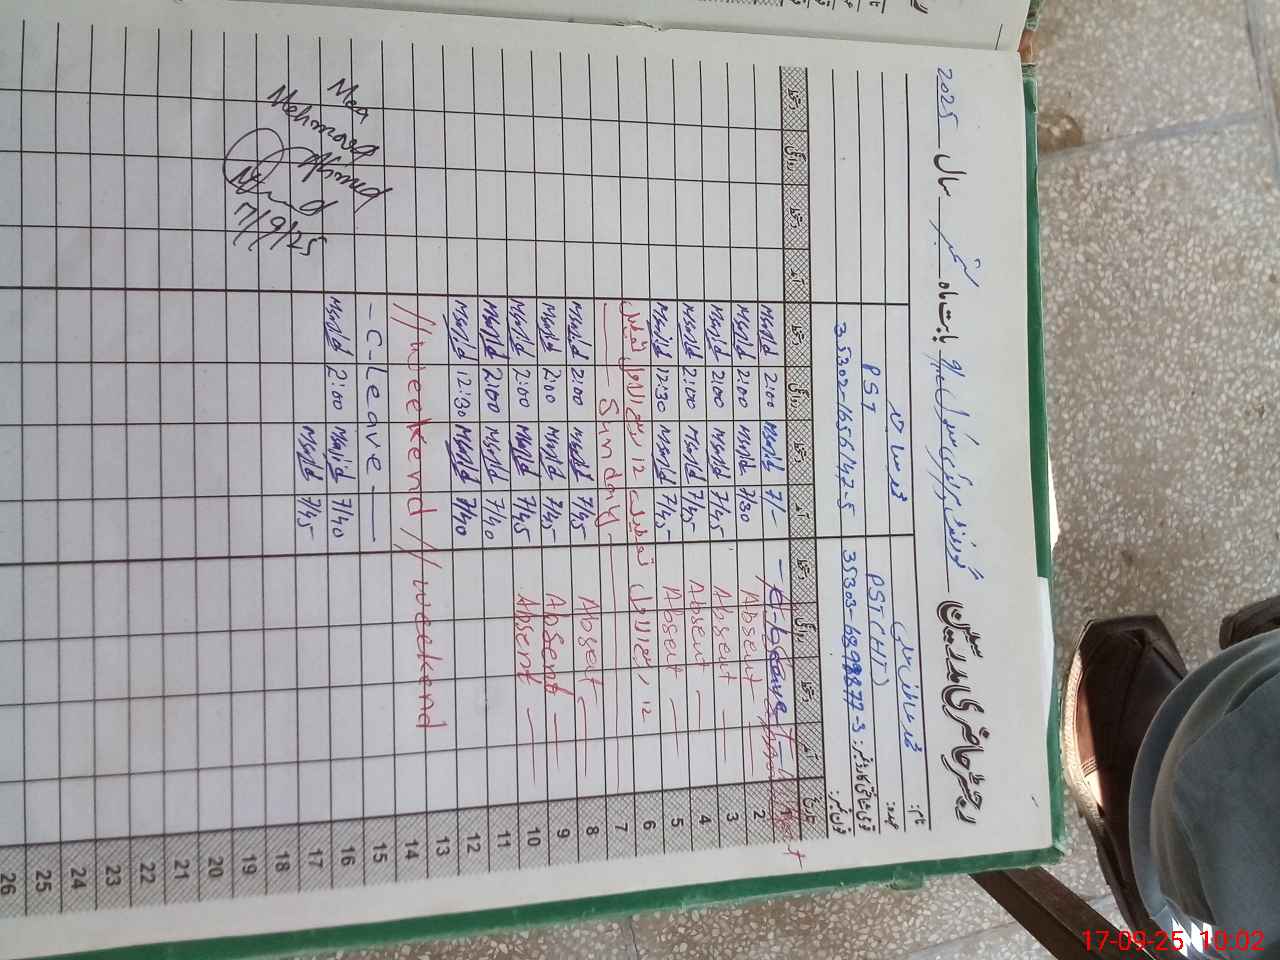 رجسٹر حاضری مدرسین گورنمنٹ پرائمری سکول بابت ماہ ستمبر سال 2025
نام:
عہدہ: PST(HT) PST
قومی شناختی کارڈ نمبر: 35303-6898877-3 35302-1656147-5
فون نمبر:
تاریخ آمد دستخط روانگی دستخط آمد دستخط روانگی دستخط آمد دستخط روانگی دستخط
1 Absent 7/- Majid 2:00 Majid
2 Absent 7/30 Majid 2:00 Majid
3 Absent 7/45 Majid 2:00 Majid
4 Absent 7/45 Majid 2:00 Majid
5 Absent 7/45 Majid 12:30 Majid
6 12 ربیع الاول تعطیل 12 ربیع الاول تعطیل
7 Sunday
8 Absent 7/45 Majid 2:00 Majid
9 Absent 7/45 Majid 2:00 Majid
10 Absent 7/45 Majid 2:00 Majid
11 7/40 Majid 2:00 Majid
12 7/40 Majid 12:30 Majid
13
14 // weekend // weekend
15 - C-Leave -
16 7/40 Majid 2:00 Majid
17 7/45 Majid
18
19
20
21
22
23
24
25
26
Mehmood
Ahmad
17/9/25
17-09-25 10:02